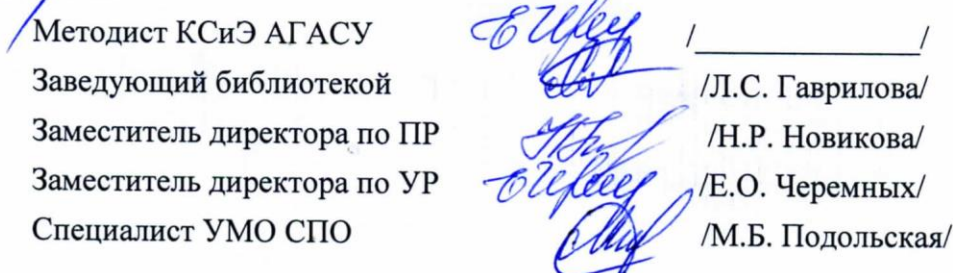 Методист КСиЭ АГАСУ /_________________/
Заведующий библиотекой /Л.С. Гаврилова/
Заместитель директора по ПР /Н.Р. Новикова/
Заместитель директора по УР /Е.О. Черемных/
Специалист УМО СПО /М.Б. Подольская/